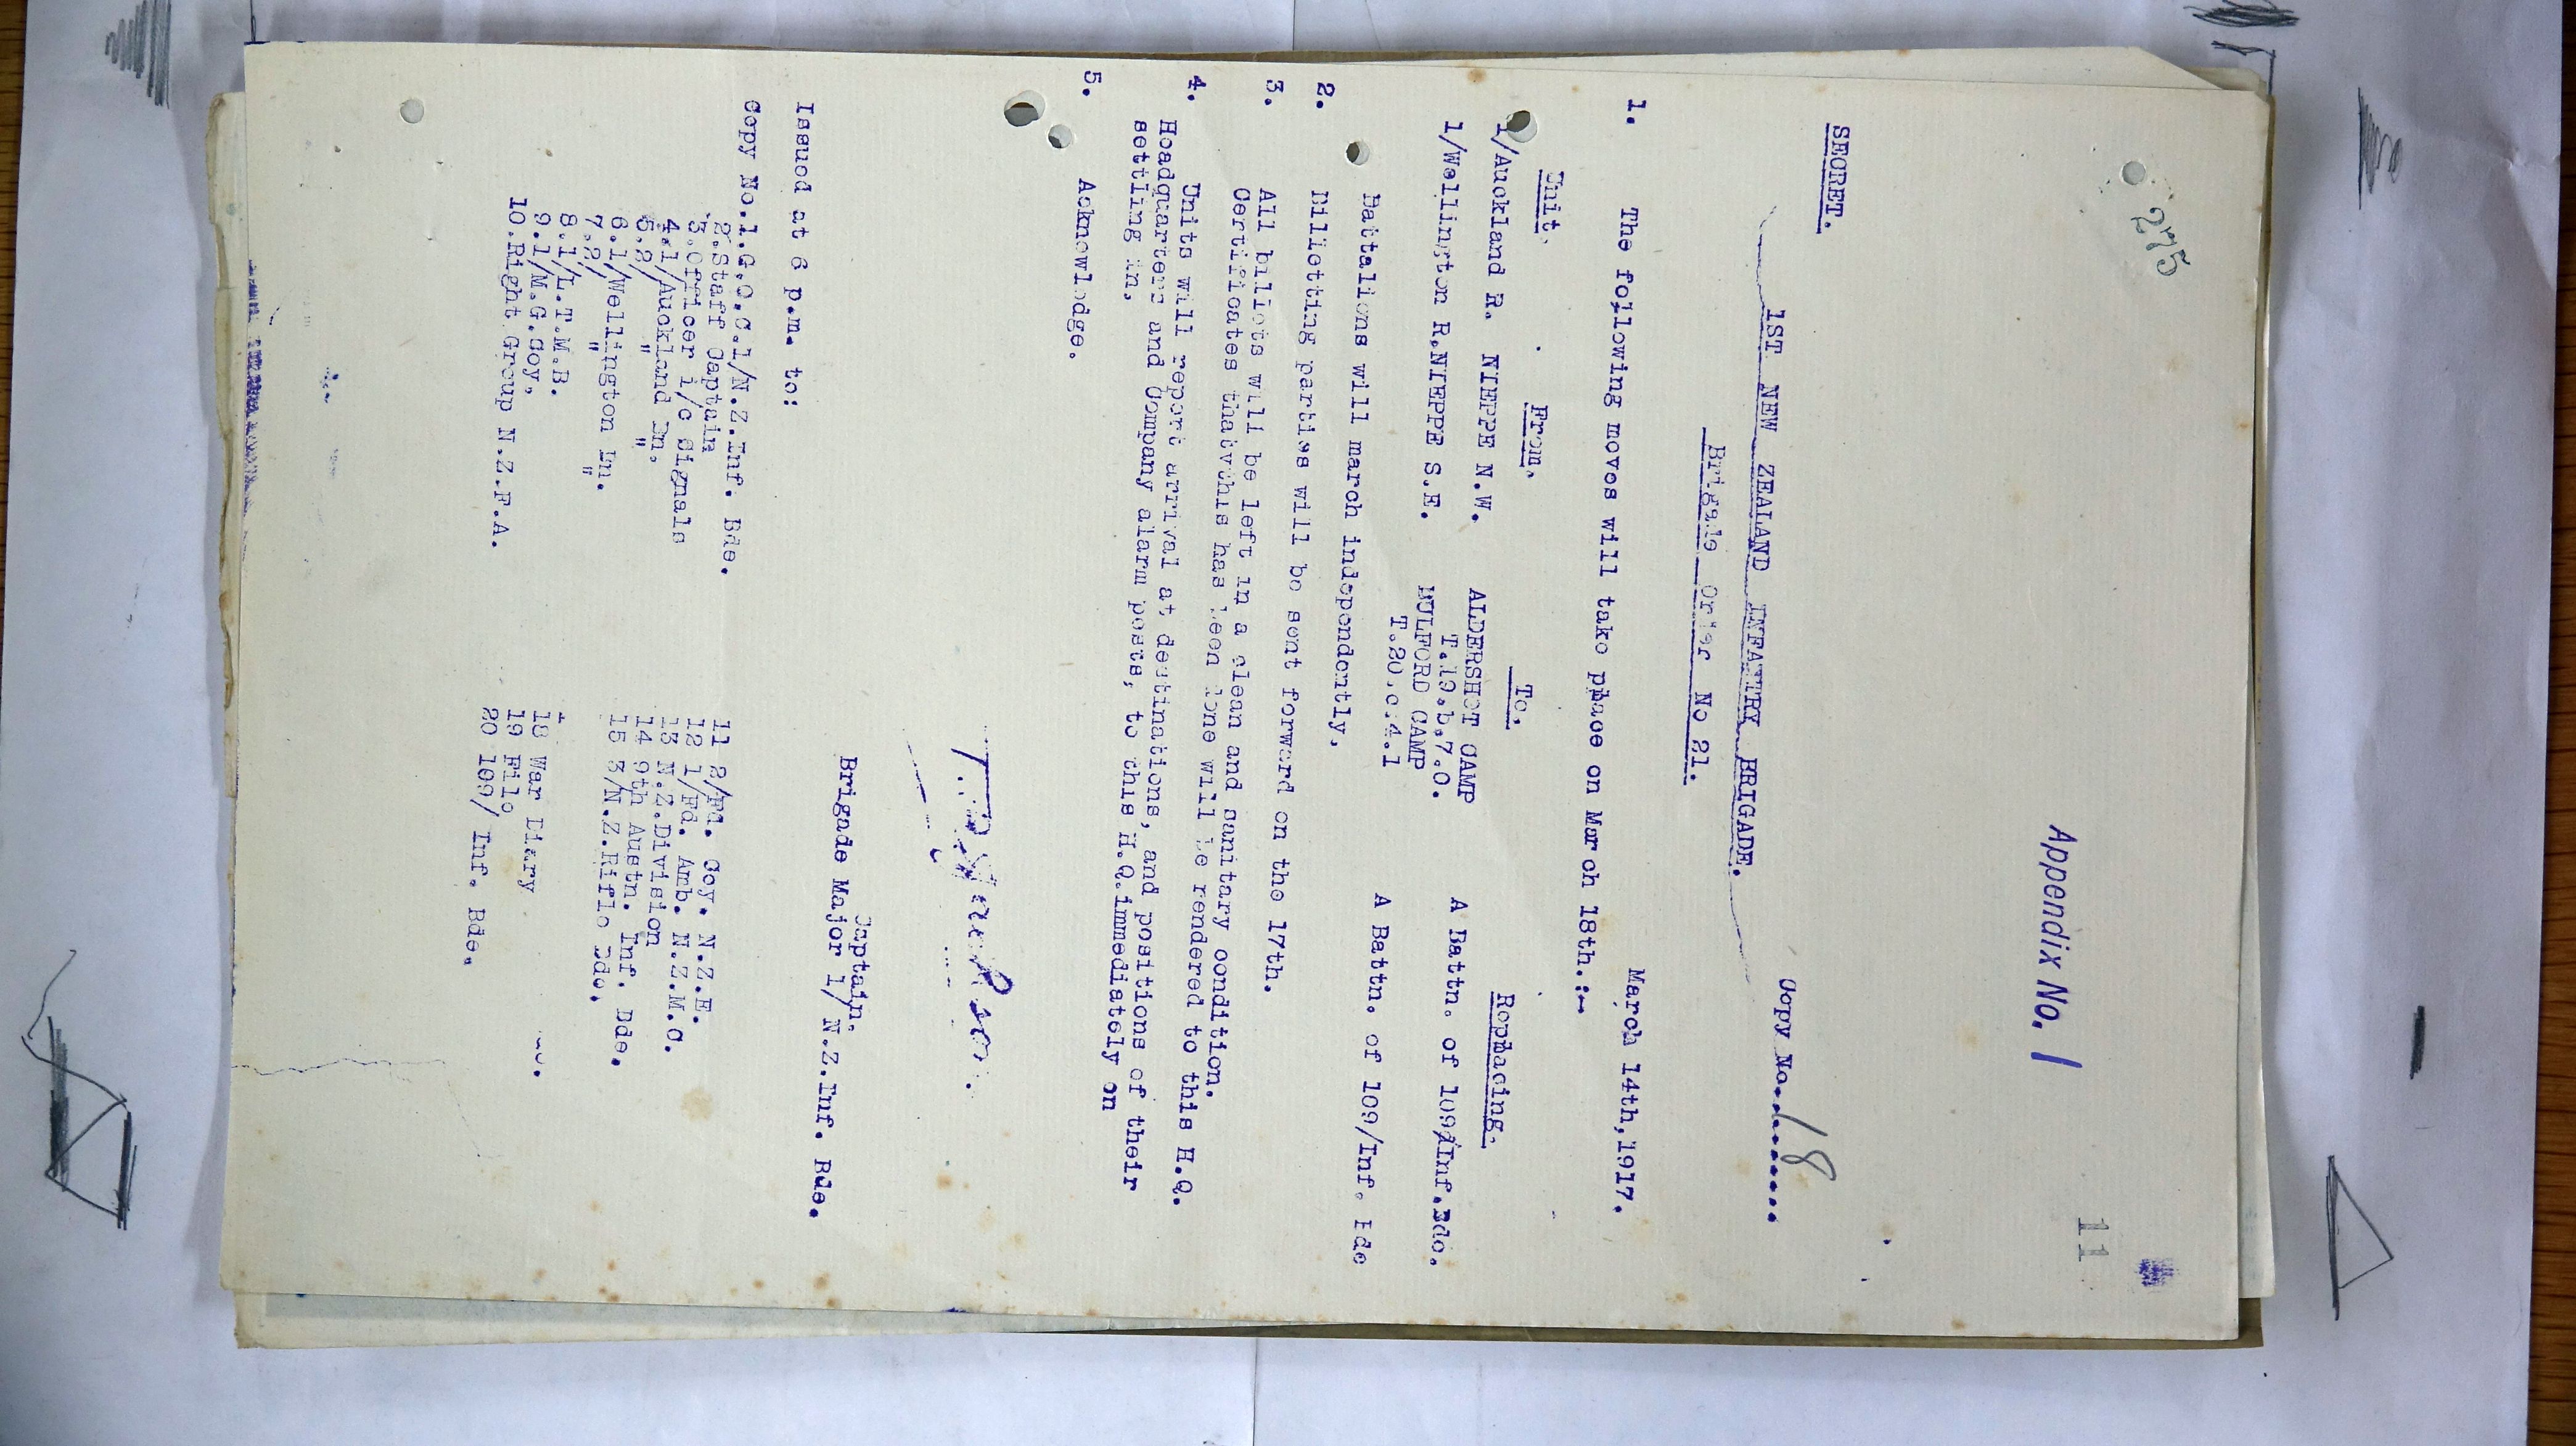 275
Appendix No. 1
11
SECRET.
Copy No. 18
1ST NEW ZEALAND INFANTRY BRIGADE.
Brigade Order No 21.
March 14th, 1917.
1. The following moves will take place on March 18th.:-
Unit. From. To. Replacing.
1/Auckland R. NIEPPE N.W. ALDERSHOT CAMP A Battn. of 109/Inf.Bde.
T.19.b.7.0.
1/Wellington R. NIEPPE S.E. BULFORD CAMP A Battn. of 109/Inf. Bde
T.20.c.4.1
Battalions will march independently.
2. Billetting parties will be sent forward on the 17th.
3. All billets will be left in a clean and sanitary condition.
Certificates that this has been done will be rendered to this H.Q.
4. Units will report arrival at destinations, and positions of their
Headquarters and Company alarm posts, to this H.Q. immediately on
settling in.
5. Acknowledge.
Captain.
Brigade Major 1/ N.Z.Inf. Bde.
Issued at 6 p.m. to:
Copy No.1.G.O.C.1/N.Z.Inf. Bde.
2.Staff Captain
3.Officer i/c Signals
4.1/Auckland Bn.
5.2/ "
6.1/Wellington Bn.
7.2/ "
8.1/L.T.M.B.
9.1/M.G.Coy.
10.Right Group N.Z.F.A.
11 2/Fd. Coy. N.Z.E.
12 1/Fd. Amb. N.Z.M.C.
13 N.Z.Division
14 9th Austn. Inf. Bde.
15 3/N.Z.Rifle Bde.
18 War Diary
19 File
20 109/ Inf. Bde.